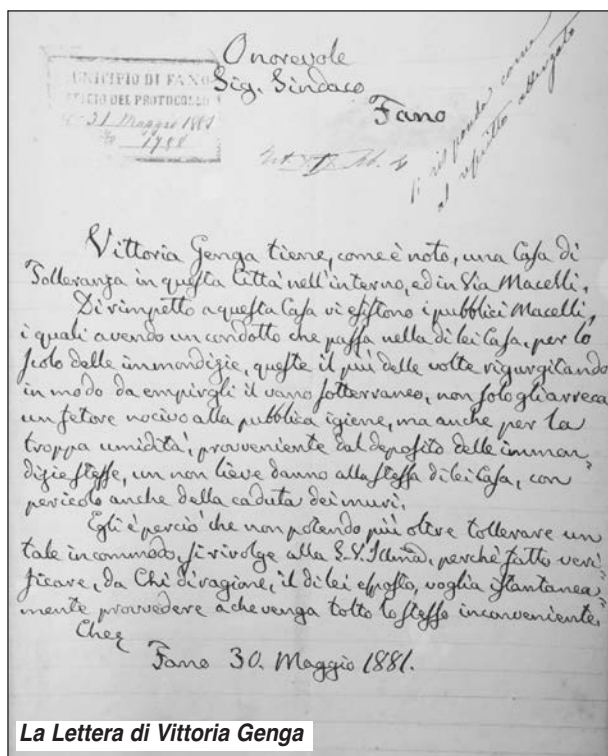 Onorevole
Sig. Sindaco
Fano
MUNICIPIO DI FANO
UFFICIO DEL PROTOCOLLO
31 Maggio 1881
Si risponda come
al referitto allegato
Vittoria Genga tiene, come è noto, una Casa di
Tolleranza in questa Città nell'interno, ed in Via Macelli.
Dirimpetto a questa Casa vi esistono i pubblici Macelli,
i quali avendo un condotto che passa nella di lei Casa, per lo
scolo delle immondizie, queste il più delle volte rigurgitando
in modo da empirgli il vano sotterraneo, non solo gli arreca
un fetore nocivo alla pubblica igiene, ma anche per la
troppa umidità, proveniente dal deposito delle immon„
dizie stesse, un non lieve danno alla stessa di lei Casa, con
pericolo anche della caduta dei muri.
Egli è perciò che non potendo più oltre tollerare un
tale incommodo, si rivolge alla S.V. Illma, perchè fatto veri„
ficare, da Chi di ragione, il di lei esposto, voglia istantanea„
mente provvedere a che venga tolto lo stesso inconveniente.
Che
Fano 30. Maggio 1881.
La Lettera di Vittoria Genga